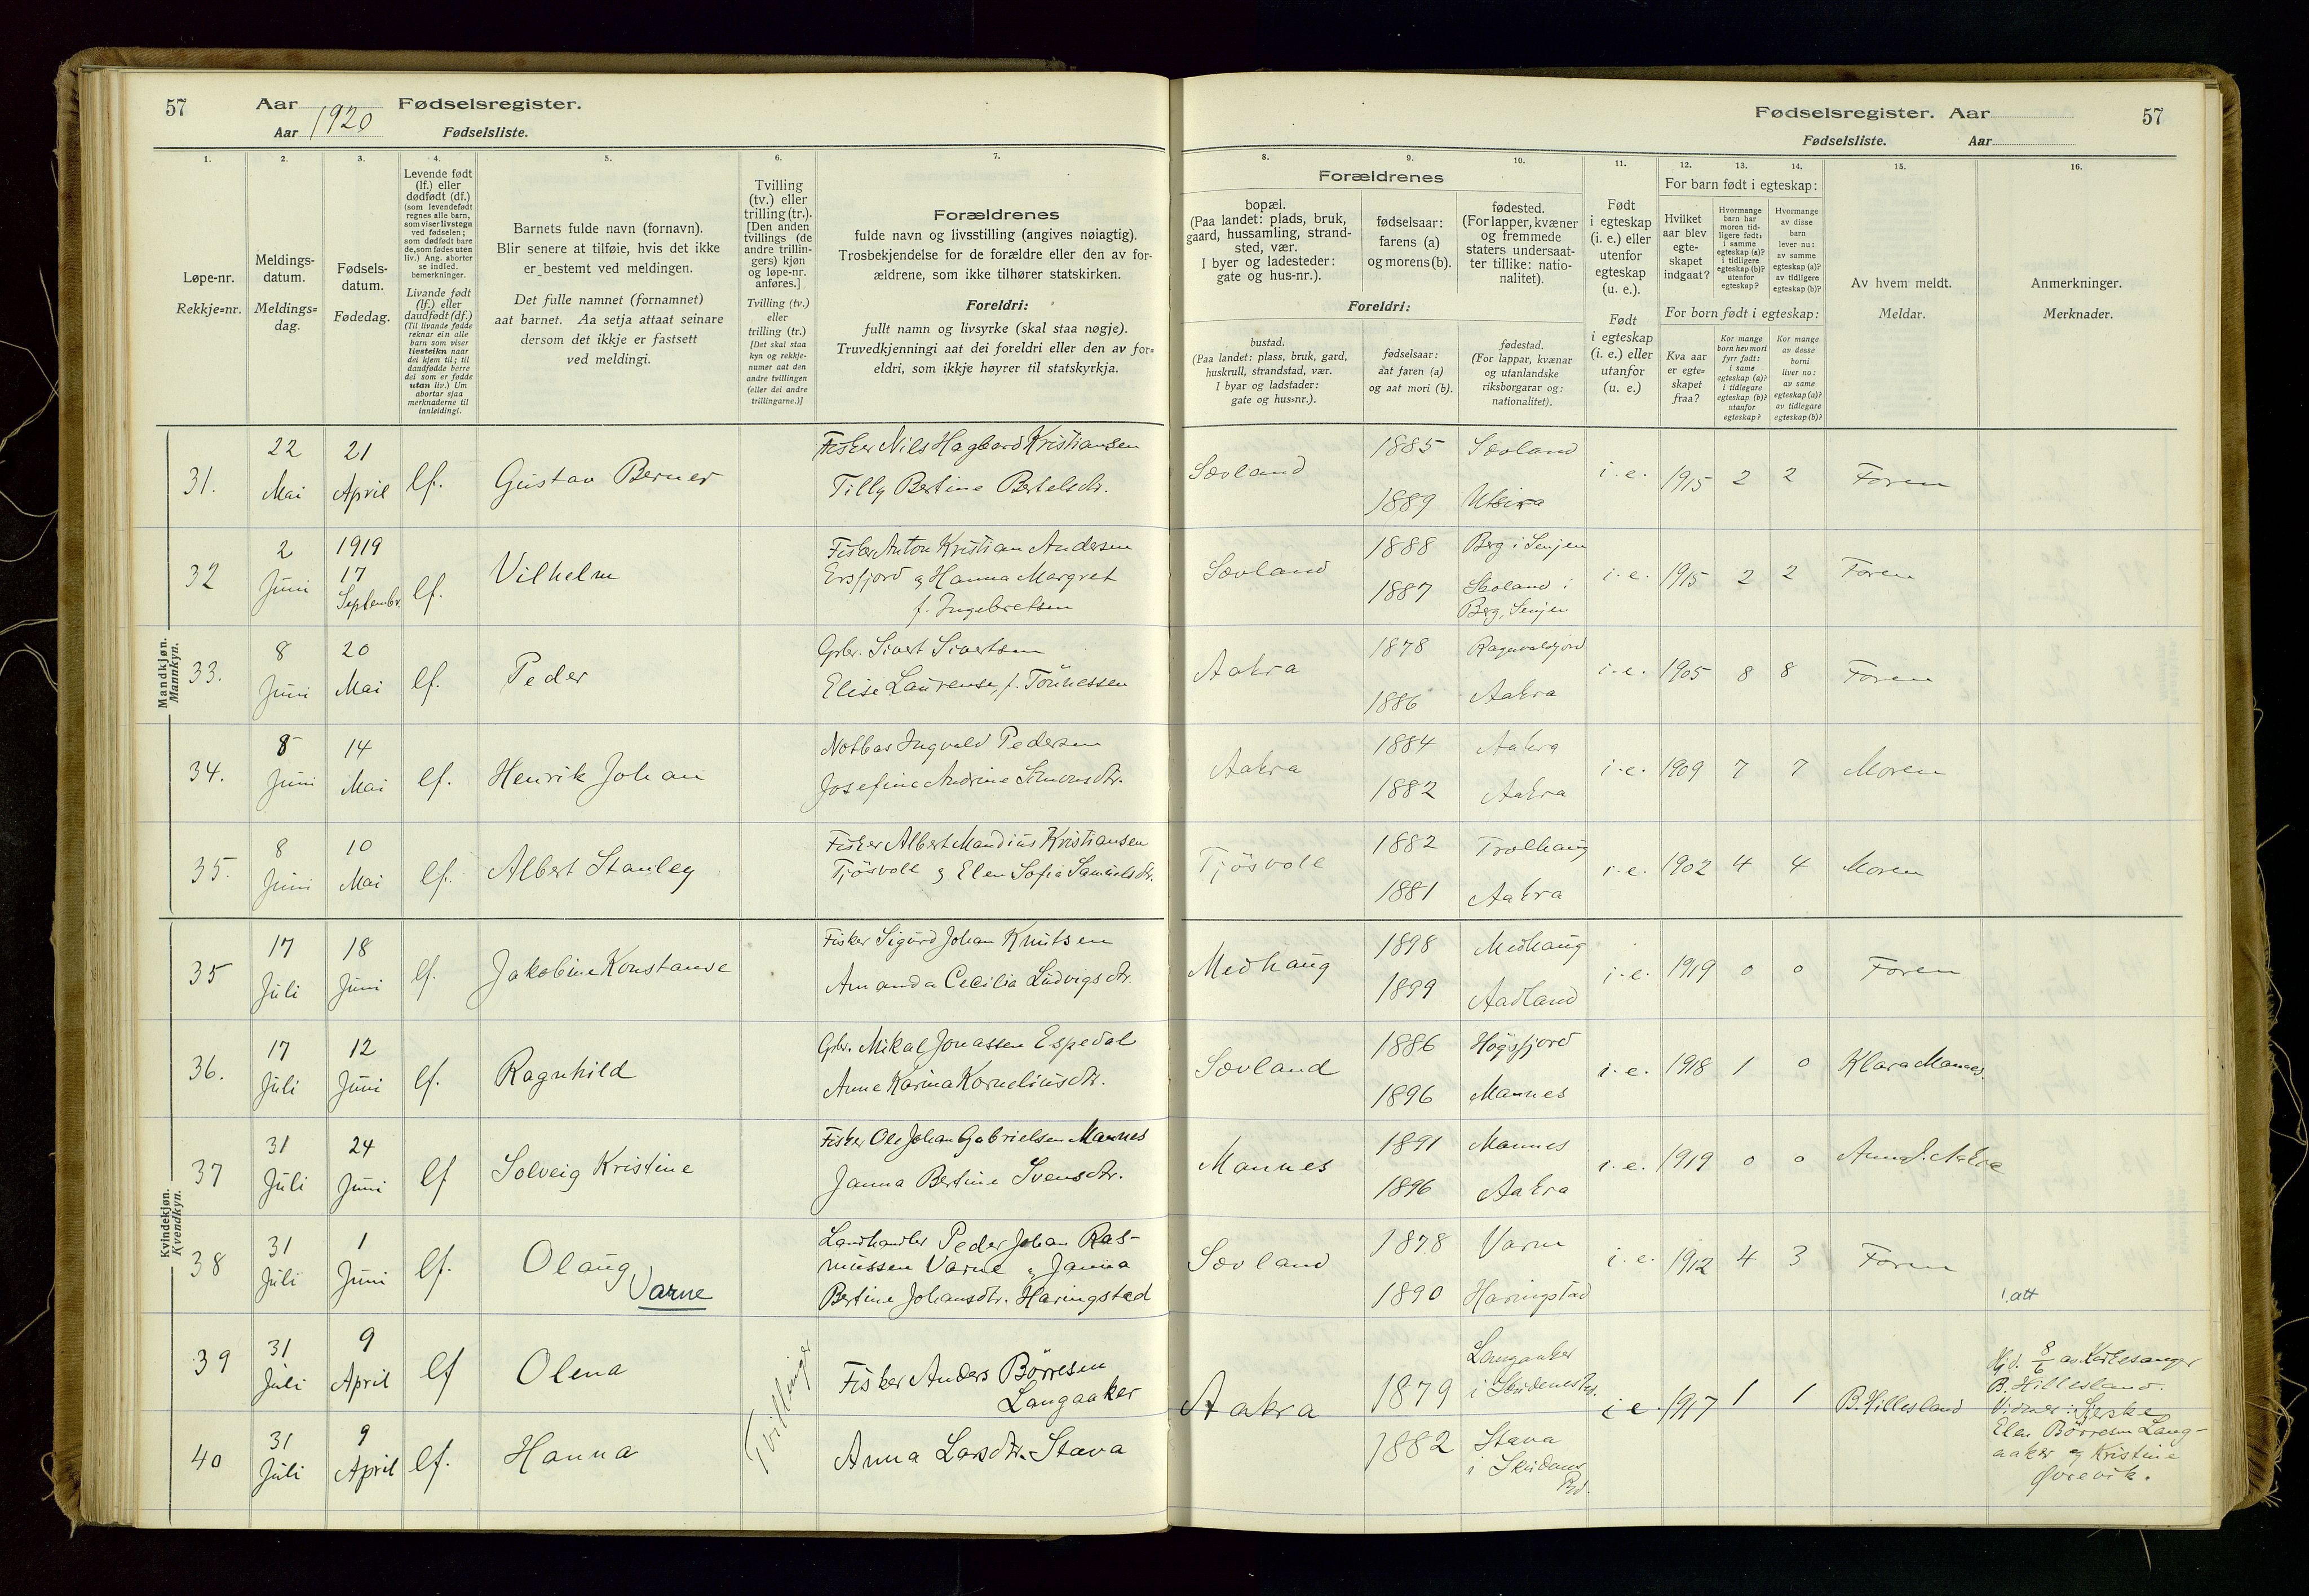 57 Aar 1920 Fødselsregister.
Aar Fødselsliste.
Fødselsregister. Aar 57
Fødselsliste. Aar
1. 2. 3. 4. 5. 6. 7. 8. 9. 10. 11. 12. 13. 14. 15. 16.
Løpe-nr.
Rekkje=nr.
Meldings-
datum.
Meldings=
dag.
Fødsels-
datum.
Fødedag.
Levende født
(lf.) eller
dødfødt (df.)
(som levendefødt
regnes alle barn,
som viser livstegn
ved fødselen;
som dødfødt bare
de, som fødes uten
liv.) Ang. aborter
se indled.
bemerkninger.
Livande født
(lf.) eller
daudfødt (df.)
(Til livande fødde
reknar ein alle
barn som viser
livsteikn naar
dei kjem til; til
daudfødde berre
dei som er fødde
utan liv.) Um
abortar sjaa
merknaderne til
innleidingi.
Barnets fulde navn (fornavn).
Blir senere at tilføie, hvis det ikke
er bestemt ved meldingen.
Det fulle namnet (fornamnet)
aat barnet. Aa setja attaat seinare
dersom det ikkje er fastsett
ved meldingi.
Tvilling
(tv.) eller
trilling (tr.).
[Den anden
tvillings (de
andre trillin-
gers) kjøn
og løpe-nr.
anføres.]
Tvilling (tv.)
eller
trilling (tr.)
[Det skal staa
kyn og rekkje-
numer aat den
andre tvillingen
(eller dei andre
trillingarne.)]
Forældrenes
fulde navn og livsstilling (angives nøiagtig).
Trosbekjendelse for de forældre eller den av for-
ældrene, som ikke tilhører statskirken.
Foreldri:
fullt namn og livsyrke (skal staa nøgje).
Truvedkjenningi aat dei foreldri eller den av for=
eldri, som ikkje høyrer til statskyrkja.
Forældrenes
bopæl.
(Paa landet: plads, bruk,
gaard, hussamling, strand-
sted, vær.
I byer og ladesteder:
gate og hus-nr.).
fødselsaar:
farens (a)
og morens (b).
fødested.
(For lapper, kvæner
og fremmede
staters undersaat-
ter tillike: natio-
nalitet).
Foreldri:
bustad.
(Paa landet: plass, bruk, gard,
huskrull, strandstad, vær.
I byar og ladstader:
gate og hus=nr.).
fødselsaar:
aat faren (a)
og aat mori (b).
fødestad.
(For lappar, kvænar
og utanlandske
riksborgarar og:
nationalitet).
Født
i egteskap
(i. e.) eller
utenfor
egteskap
(u. e.).
Født
i egteskap
(i. e.) eller
utanfor
(u. e.)
For barn født i egteskap:
Hvilket
aar blev
egte-
skapet
indgaat?
Hvormange
barn har
moren tid-
ligere født:
i samme
egteskap (a)?
i tidligere
egteskap (b)?
utenfor
egteskap?
Hvormange
av disse
barn
lever nu:
av samme
egteskap (a)?
av tidligere
egteskap (b)?
For born født i egteskap:
Kva aar
er egte=
skapet
fraa?
Kor mange
born hev mori
fyrr født:
i same
egteskap (a)?
i tidlegare
egteskap (b)?
utanfor
egteskap?
Kor mange
av desse
borni
liver no:
av same
egteskap (a)?
av tidlegare
egteskap (b)?
Av hvem meldt.
Meldar.
Anmerkninger.
Merknader.
Mandkjøn.
Mannkyn.
31. 22 Mai 21 April lf. Gustav Berner
Fisker Nils Hagbard Kristiansen
Tilly Bertine Bertelsdtr.
Sævland 1885 Sævland
1889 Utsira
i. e. 1915 2 2 Faren
32 2 Juni 1919 17 Septembr. lf. Vilhelm
Fisker Anton Kristian Andersen
Ersfjord og Hanna Margret
f. Ingebretsen
Sævland 1888 Berg i Senjen
1887 Skaland i
Berg, Senjen
i. e. 1915 2 2 Faren
33. 8 Juni 20 Mai lf. Peder
Gbr. Sivert Sivertsen
Elise Laurense, f. Tönnessen
Aakra 1878
1886 Aakra
i. e. 1905 8 8 Faren
34. 8 Juni 14 Mai lf. Henrik Johan
Notbas Ingvald Pedersen
Josefine Andrine Simonsdtr.
Aakra 1884 Aakra
1882 Aakra
i. e. 1909 7 7 Moren
35. 8 Juni 10 Mai lf. Albert Stanley
Fisker Albert Mandius Kristiansen
Tjösvoll og Elen Sofia Samuelsdtr.
Tjösvoll 1882 Trolhaug
1881 Aakra
i. e. 1902 4 4 Moren
Kvindekjøn.
Kvendkyn.
35 17 Juli 18 Juni lf. Jakobine Konstanse
Fisker Sigurd Johan Knutsen
Amanda Cecilia Ludvigsdtr.
Medhaug 1898 Medhaug
1899 Aadland
i. e. 1919 0 0 Faren
36. 17 Juli 12 Juni lf. Ragnhild
Gbr. Mikal Jonassen Espedal
Anne Karina Korneliusdtr.
Sævland 1886 Högsfjord
1896 Mannes
i. e. 1918 1 0 Klara Mannes.
37 31 Juli 24 Juni lf Solveig Kristine
Fisker Ole Johan Gabrielsen Mannes
Janna Bertine Svensdtr.
Mannes 1891 Mannes
1896 Aakra
i. e. 1919 0 0 Anna J. Aakra
38 31 Juli 1 Juni lf. Olaug
Varne
Landhandler Peder Johan Ras-
mussen Varne og Janna
Bertine Johansdtr. Haringstad
Sævland 1878 Varne
1890 Haringstad
i. e. 1912 4 3 Faren
1. att
39 31 Juli 9 April lf Olena
Tvillinger
Fisker Anders Börresen
Langaaker
Aakra 1879 Langaaker
i Skudenes Pgd.
i e. 1917 1 1 B. Hillesland
Hjd. 8/6 av Kirkesanger
B. Hillesland.
Vidner:
Elen Börresen Lang-
aaker og Kristine
Øvrevik.
40 31 Juli 9 April lf. Hanna
Anna Larsdtr. Stava
1882 Stava
i Skudenes
Pgd.